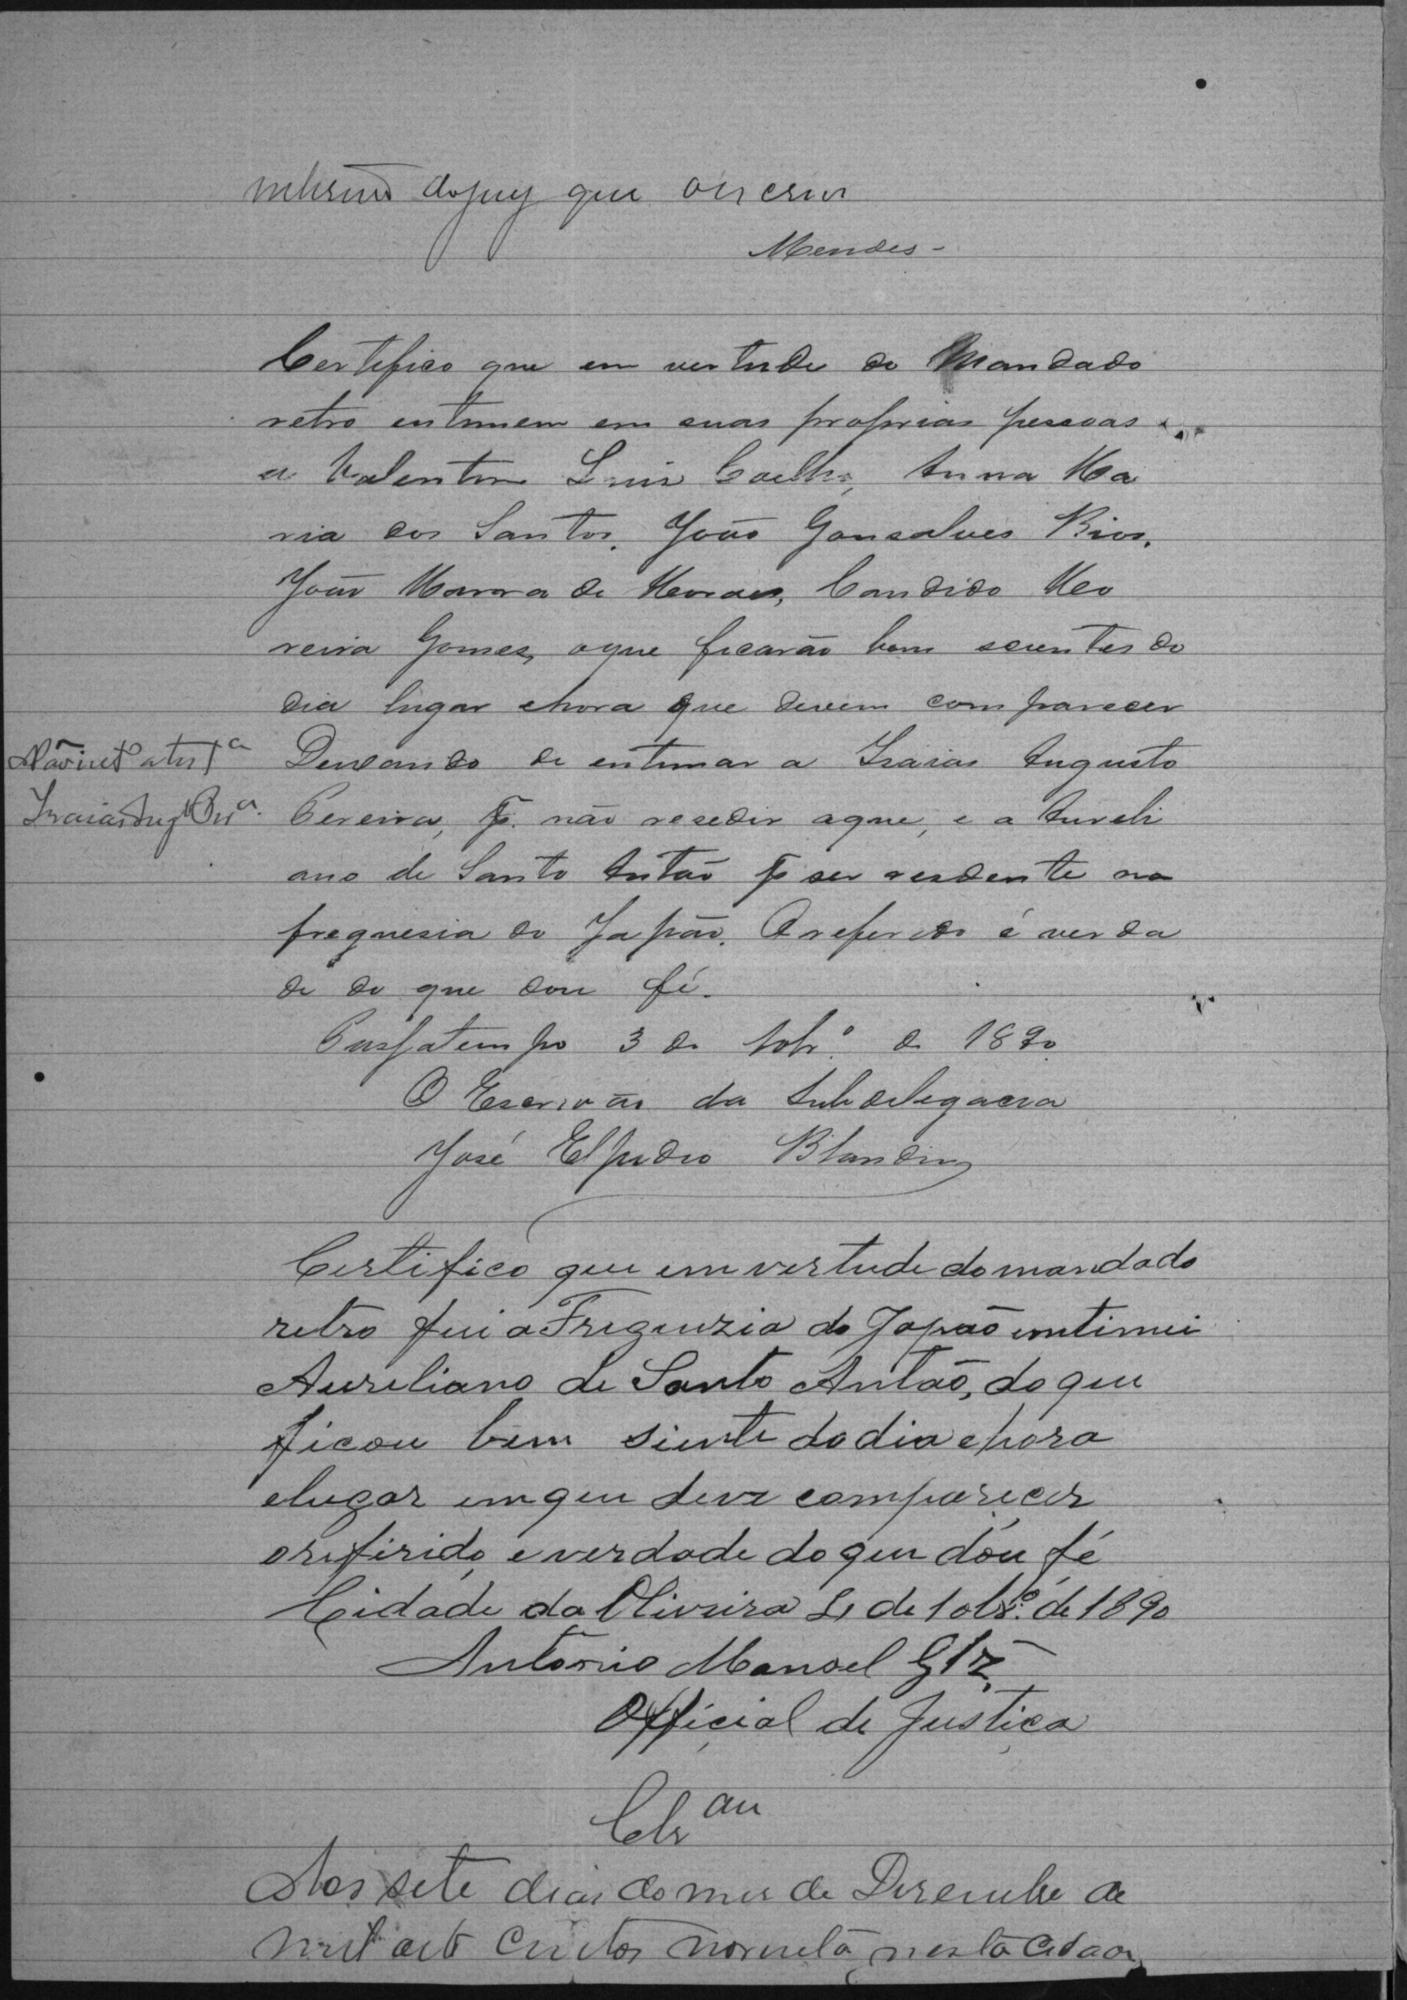 que
Mendes -
Certifico que em vertude do Mandado
retro entimem em suas proprias pessoas
a Valentim Luis Coelho, Anna Ma
ria dos Santos, João Gonsalves Rios,
João de Moraes, Candido Mo
reira Gomes, oque ficarão bem scientes do
dia lugar ehora que devem comparecer
Deixando de entimar a Izaias Augusto
Pereira, p. não resedir aque, e a Aureli
ano de Santo Antão p ser resedente na
freguesia do Japão. O referido é verda
de do que dou fé.
Passatempo 3 de 10br.º de 1890
O Escrivão da Subdelegacia
José Elpidio Blandin
Certifico que emvertude domandado
retro fui a Freguezia do Japão imtimei
Aureliano de Santo Antão, do que
ficou bem siente dodia ehora
elugar emque deve comparecer
orefirido, e verdade doque dou fé
Cidade da Oliveira 4 de 10br.º de 1890
Antonio Manoel Glz.
Official de Justiça
Clsam
Aos sete dias do mes de Desembro de
mil oito centos noventa, nesta Cidade